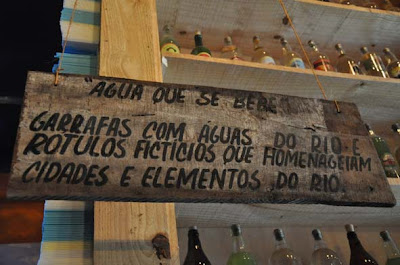 "AGUA QUE SE BEBE"
GARRAFAS COM ÁGUAS DO RIO E
ROTULOS FICTÍCIOS QUE HOMENAGEIAM
CIDADES E ELEMENTOS DO RIO.